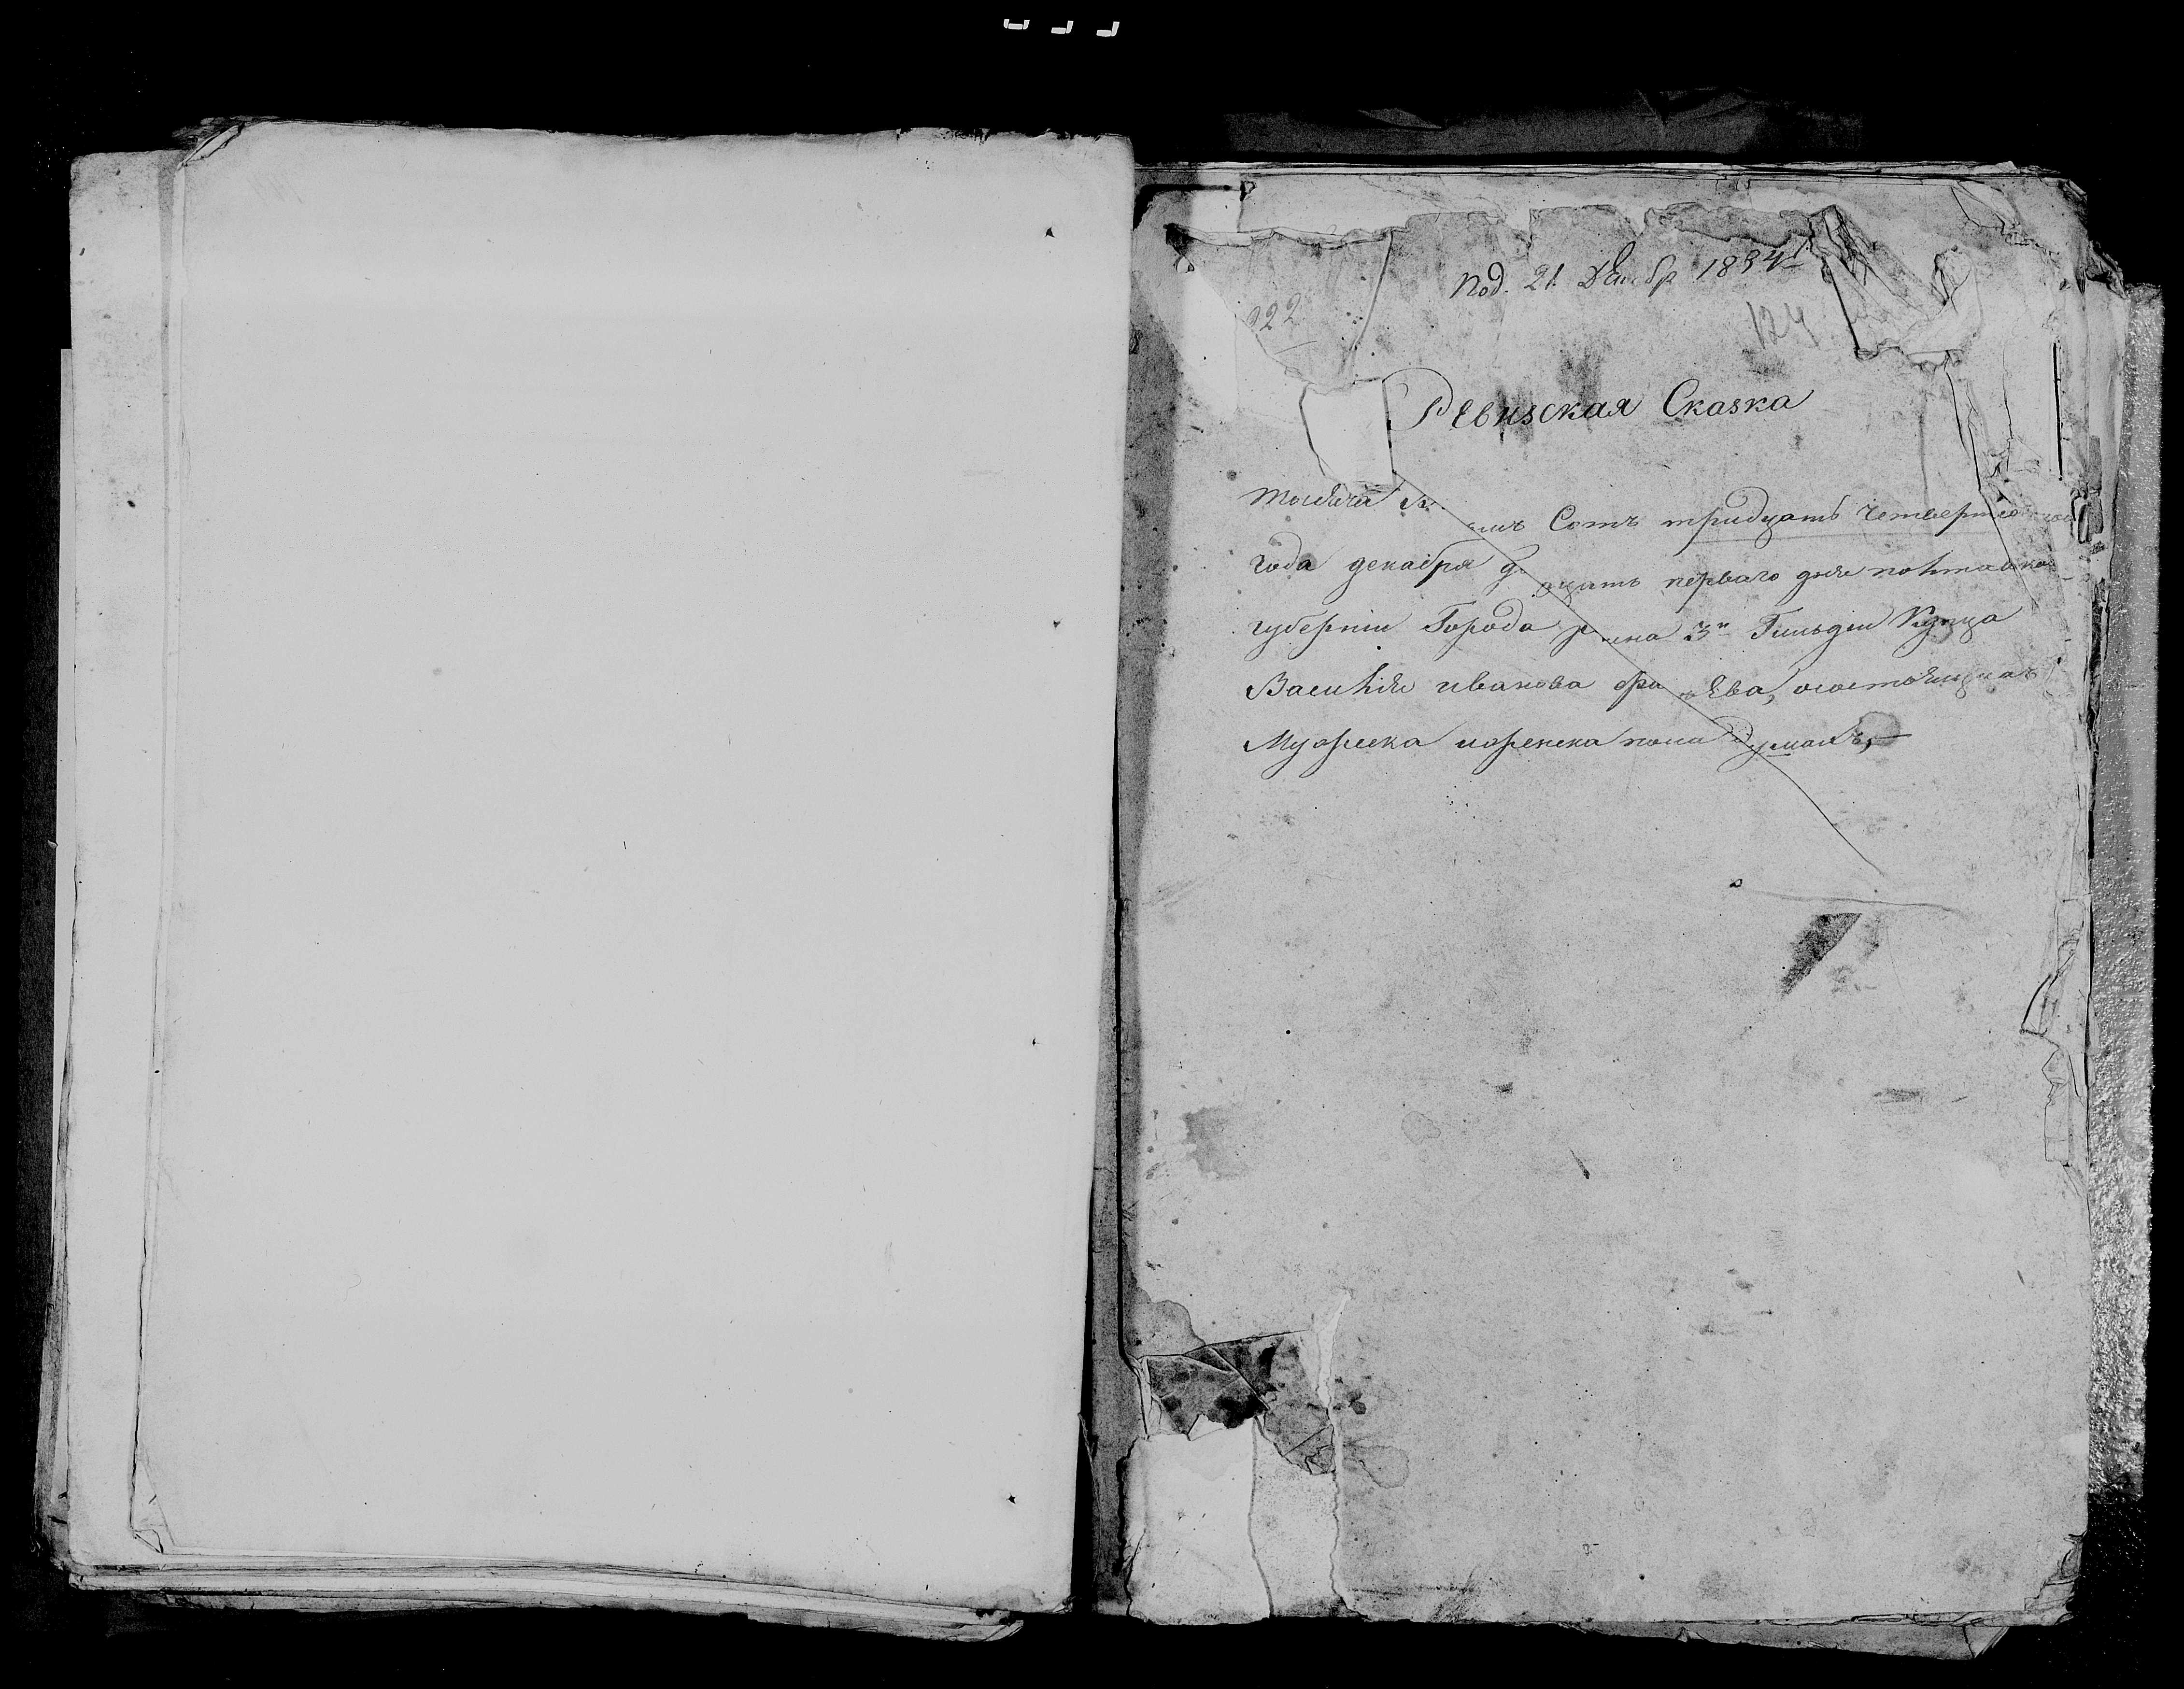 под. 21 Декабр 1834
922
124
Ревизская Сказка
тысяча в... имъ Сотъ тридцать четвертаго
года декабря д... цать перваго дня полтавской
губерніи Города ... на 3й Гильдіи Купца
Василія иванова ... ева, осостоящихъ
Мужеска иженска пола душахъ,